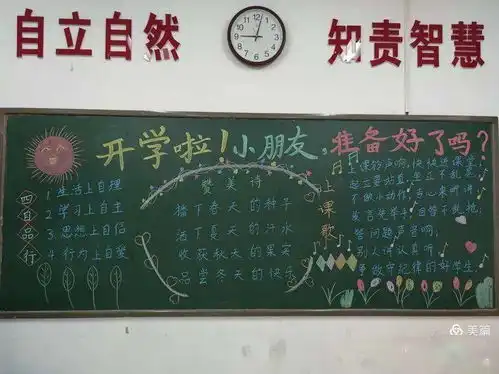 自立自然 知责智慧
开学啦！小朋友，准备好了吗？
四自品行
1.生活上自理
2.学习上自主
3.思想上自信
4.行为上自爱
赞美诗
播下春天的种子
洒下夏天的汗水
收获秋天的果实
品尝冬天的快乐
上课歌
上课铃声响，快快进课堂
起立要站直，坐正不乱晃
不做小动作，专心来听讲
发言先举手，
答问题声音响
别人讲认真听
争做守纪律的好学生
美篇